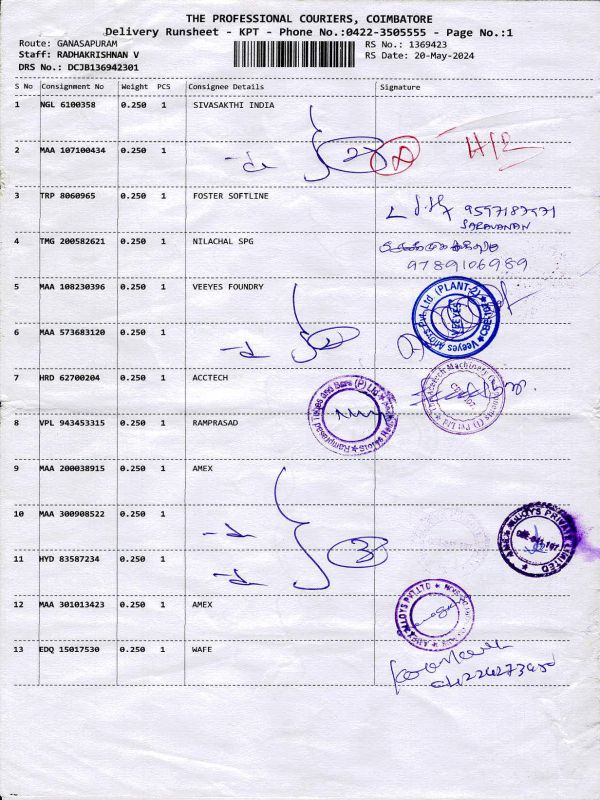 THE PROFESSIONAL COURIERS, COIMBATORE
Delivery Runsheet - KPT - Phone No.:0422-3505555 - Page No.:1
Route: GANASAPURAM
RS No.: 1369423
Staff: RADHAKRISHNAN V
RS Date: 20-May-2024
DRS No.: DCJB136942301
S No Consignment No Weight PCS Consignee Details Signature
1 NGL 6100358 0.250 1 SIVASAKTHI INDIA
2 MAA 107100434 0.250 1 -do 2
3 TRP 8060965 0.250 1 FOSTER SOFTLINE
SARAVANAN
4 TMG 200582621 0.250 1 NILACHAL SPG
9789106989
5 MAA 108230396 0.250 1 VEEYES FOUNDRY
Veeyes Alloys Pvt. Ltd (PLANT-2)
VEEYES
6 MAA 573683120 0.250 1 -do 2
7 HRD 62700204 0.250 1 ACCTECH
8 VPL 943453315 0.250 1 RAMPRASAD
9 MAA 200038915 0.250 1 AMEX
10 MAA 300908522 0.250 1 -do
AMEX ALLOYS PRIVATE LIMITED
11 HYD 83587234 0.250 1 -do 3
12 MAA 301013423 0.250 1 AMEX
13 EDQ 15017530 0.250 1 WAFE